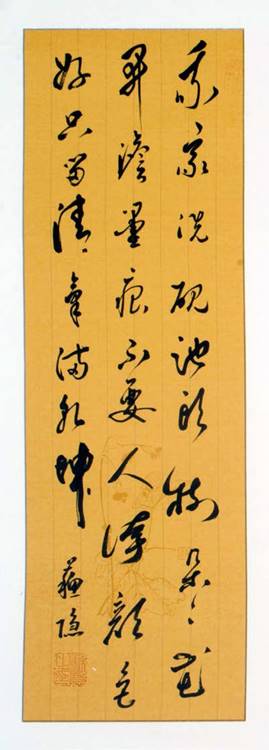 我家洗硯池頭樹朵々花
開澹墨痕不要人誇顔色
好只留清氣滿乾坤